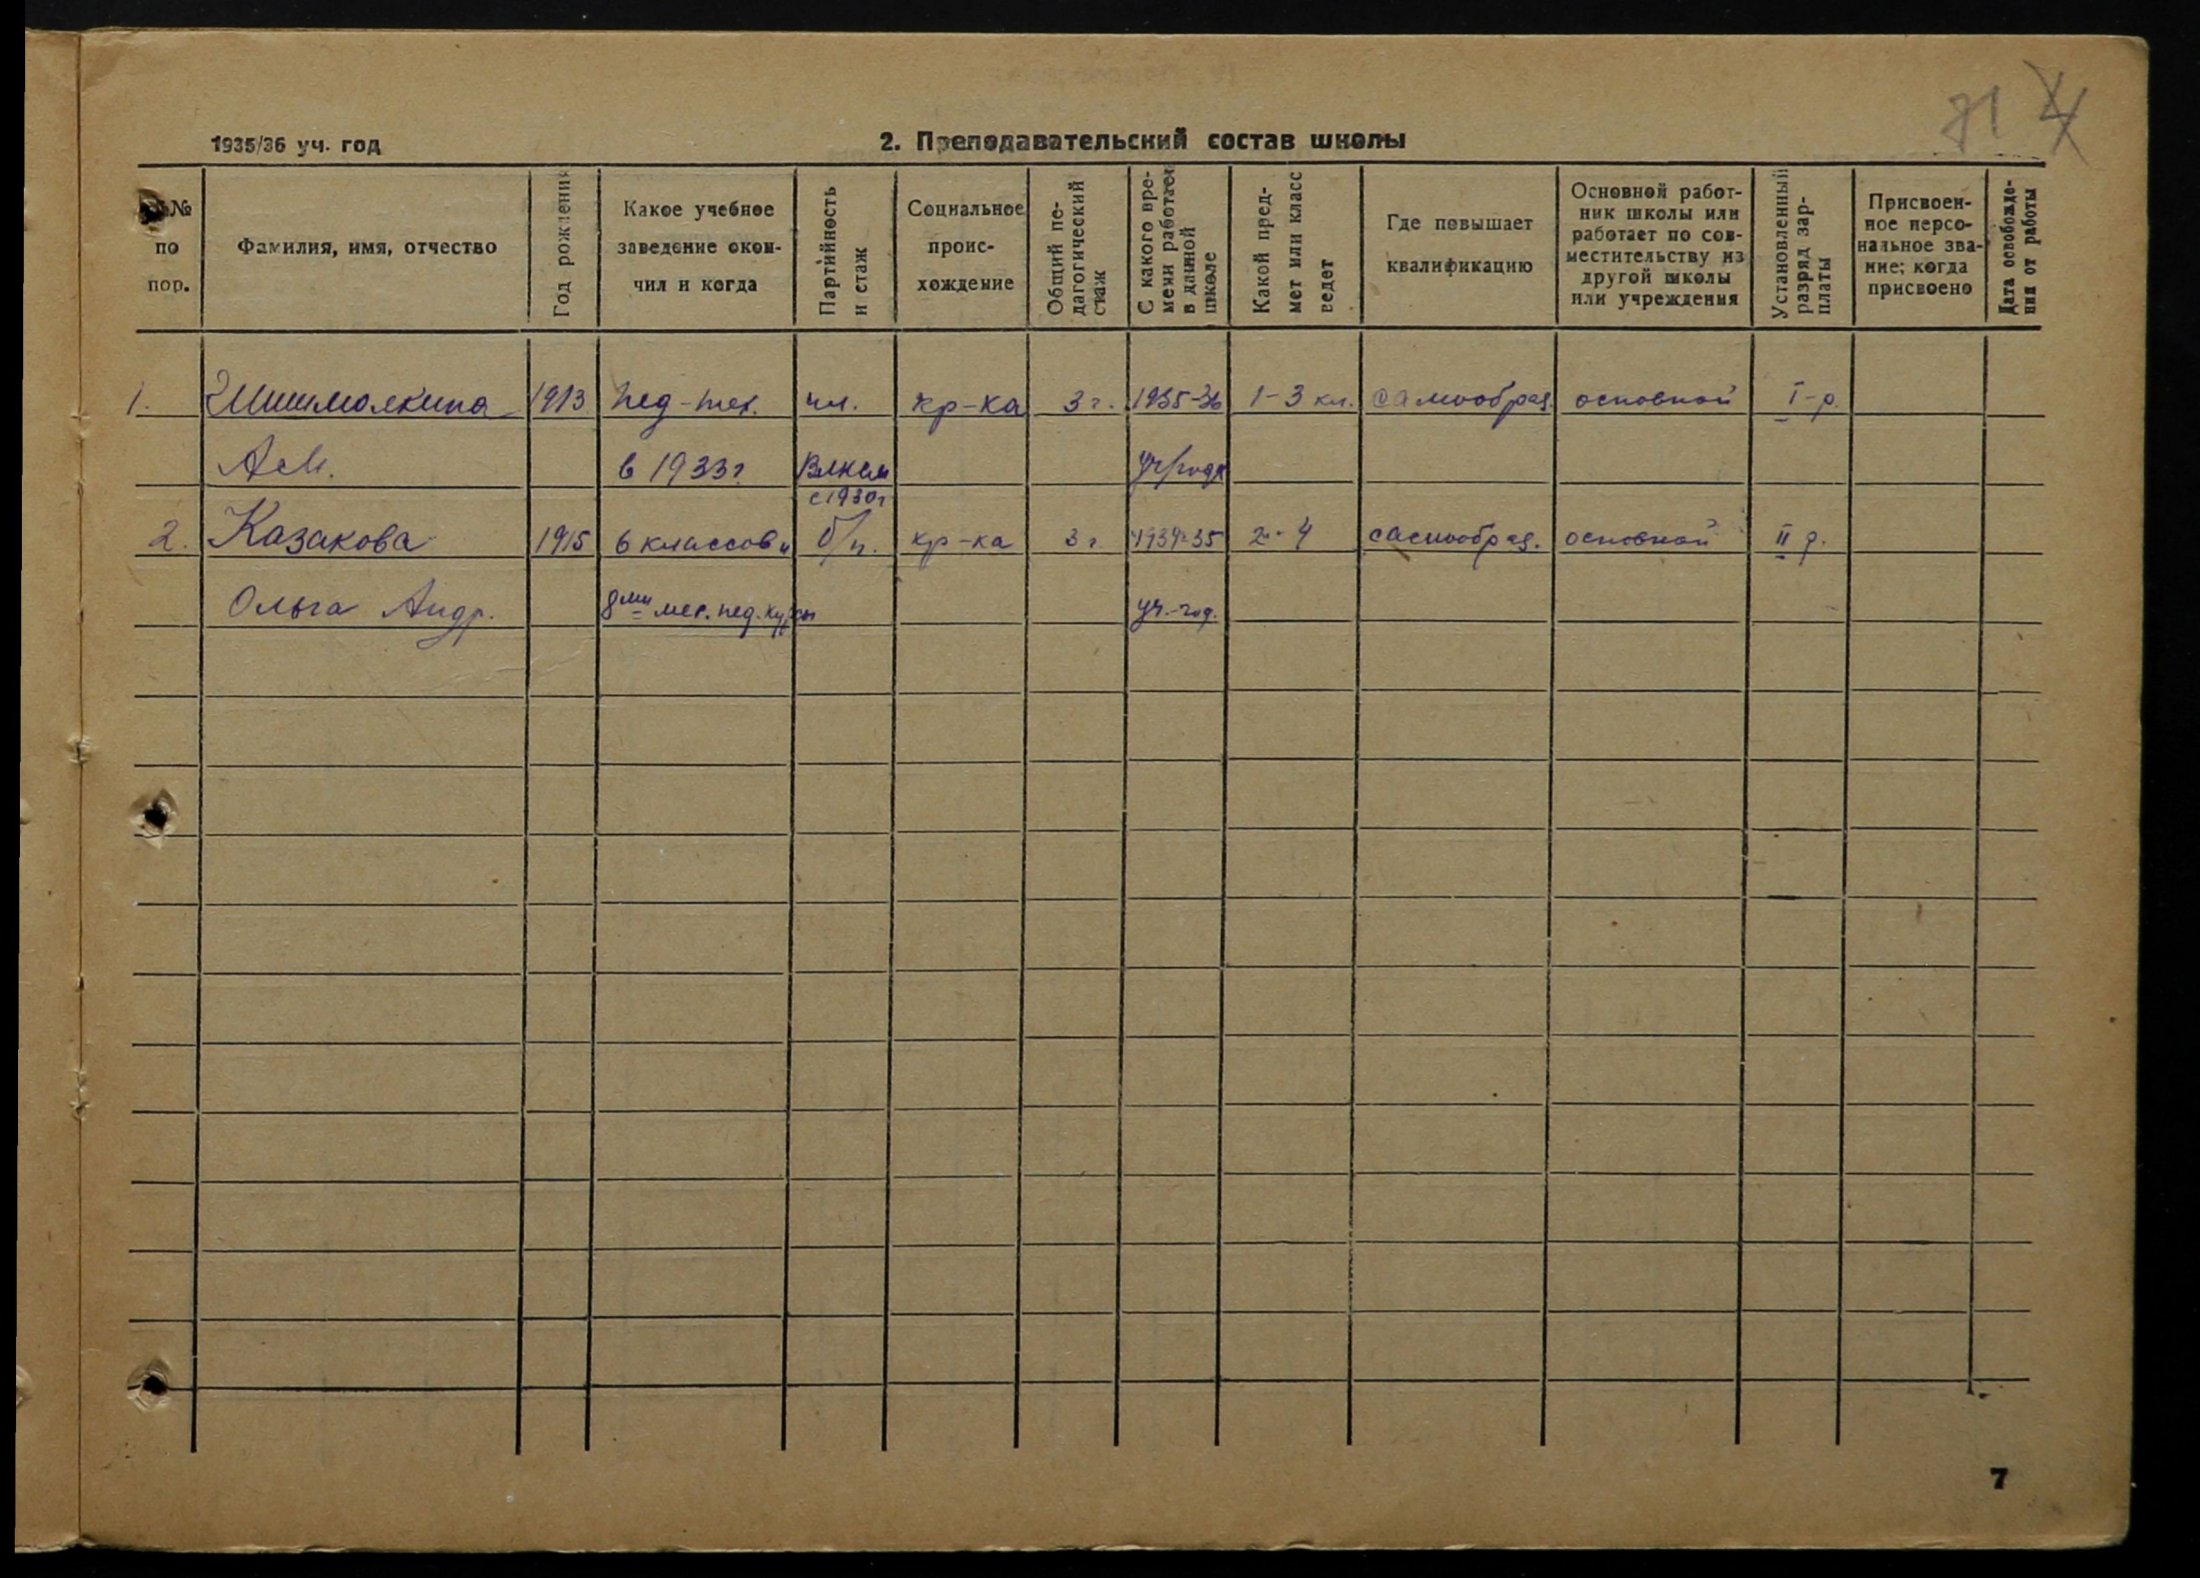 71 4
1935/36 уч. год
2. Преподавательский состав школы
№№ по пор.
Фамилия, имя, отчество
Год рождения
Какое учебное заведение окон-чил и когда
Партийность и стаж
Социальное проис-хождение
Общий пе-дагогический стаж
С какого вре-мени работает в данной школе
Какой пред-мет или класс ведет
Где повышает квалификацию
Основной работ-ник школы или работает по сов-местительству из другой школы или учреждения
Установленный разряд зар-платы
Присвоен-ное персо-нальное зва-ние; когда присвоено
Дата освобожде-ния от работы
1. Шишмолкина 1913 Пед-тех. чл. кр-ка 3 г. 1935-36 1-3 кл. самообраз. основной I-р.
А.М. в 1933г. Влксм уч/года
с 1930г
2. Казакова 1915 6 классов и б/п. кр-ка 3 г. 1934-35 2-4 самообраз. основной II р.
Ольга Андр. 8ми мес. пед. курсы уч.-год.
7